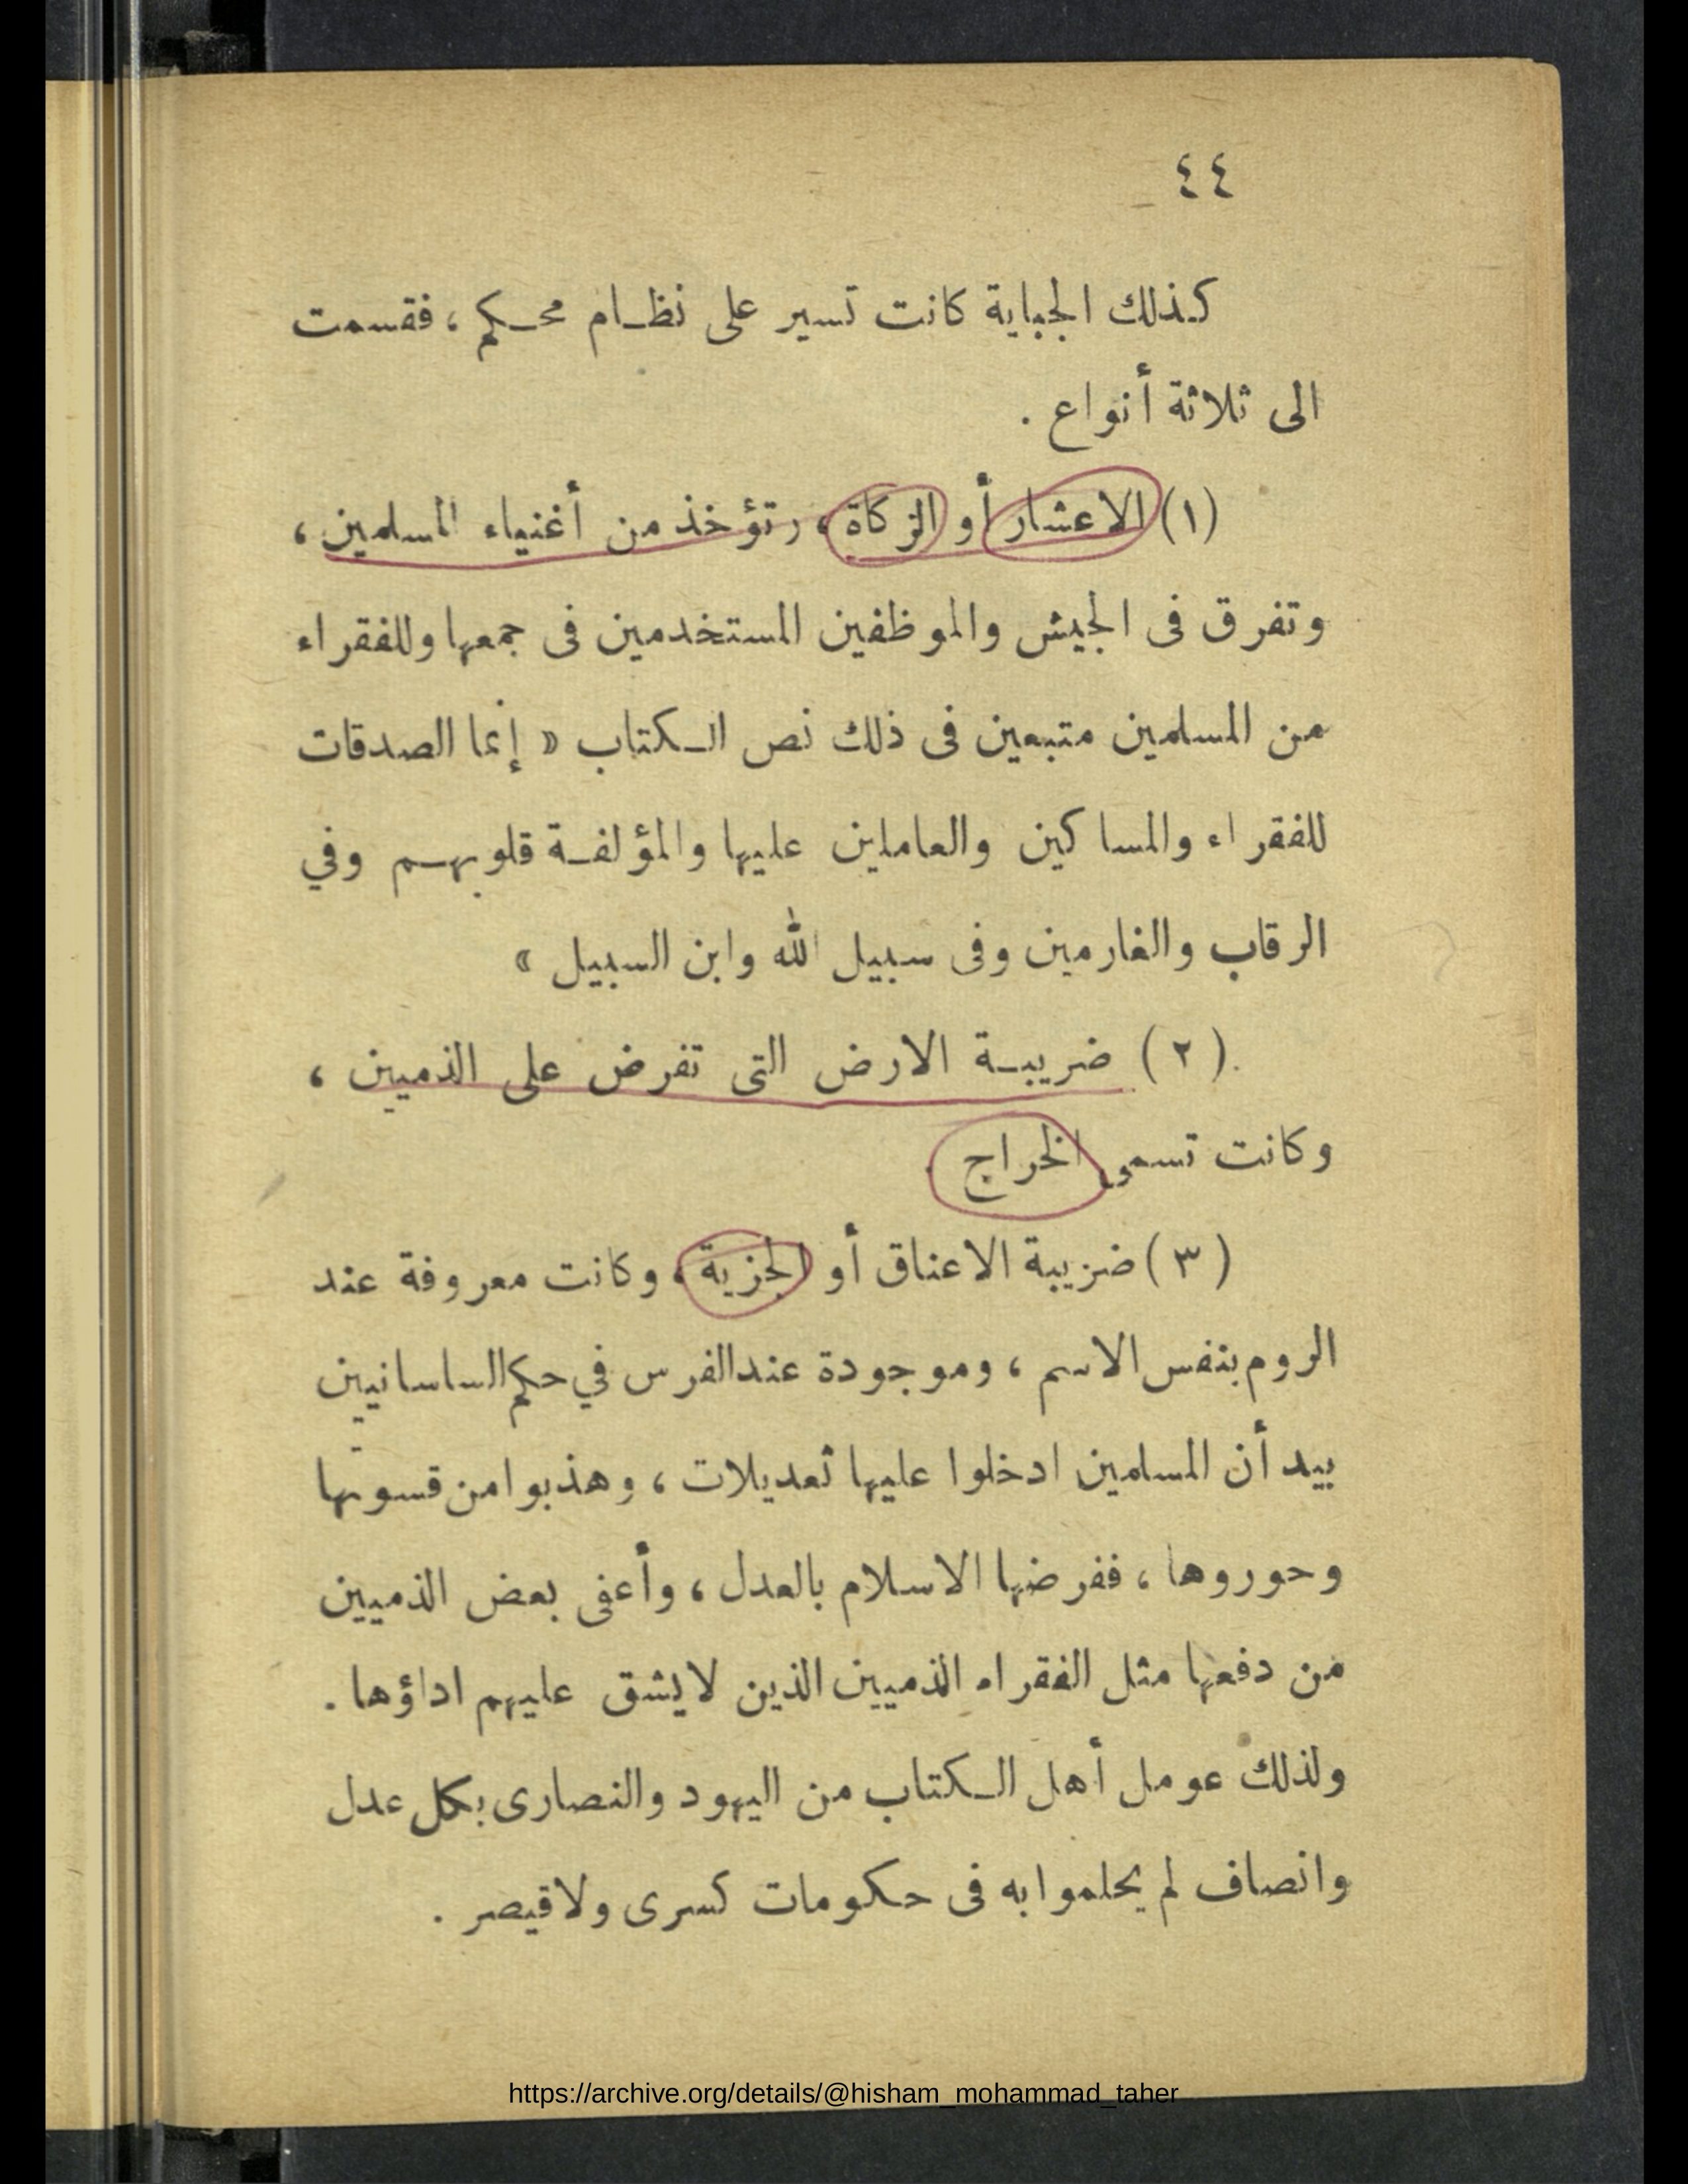 ٤٤
كذلك الجباية كانت تسير على نظام محكم ، فقسمت
الى ثلاثة أنواع .
(١) الاعشار أو الزكاة ، وتؤخذ من أغنياء المسلمين ،
وتفرق فى الجيش والموظفين المستخدمين فى جمعها وللفقراء
من المسلمين متبعين فى ذلك نص الكتاب « إنما الصدقات
للفقراء والمساكين والعاملين عليها والمؤلفة قلوبهم وفي
الرقاب والغارمين وفى سبيل الله وابن السبيل »
(٢) ضريبة الارض التى تفرض على الذميين ،
وكانت تسمى الخراج .
(٣) ضريبة الاعناق أو الجزية ، وكانت معروفة عند
الروم بنفس الاسم ، وموجودة عند الفرس في حكم الساسانيين
بيد أن المسلمين ادخلوا عليها تعديلات ، وهذبوا من قسوتها
وحوروها ، ففرضها الاسلام بالعدل ، وأعفى بعض الذميين
من دفعها مثل الفقراء الذميين الذين لا يشق عليهم اداؤها .
ولذلك عومل أهل الكتاب من اليهود والنصارى بكل عدل
وانصاف لم يحلموا به فى حكومات كسرى ولا قيصر .
https://archive.org/details/@hisham_mohammad_taher